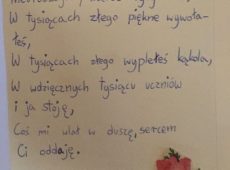 W tysiącach złego piękne wywoła-
łeś,
W tysiącach złego wyplełeś kąkola,
W wdzięcznych tysiącu uczniów
i ja stoję,
Coś mi wlał w duszę, sercem
Ci oddaję.